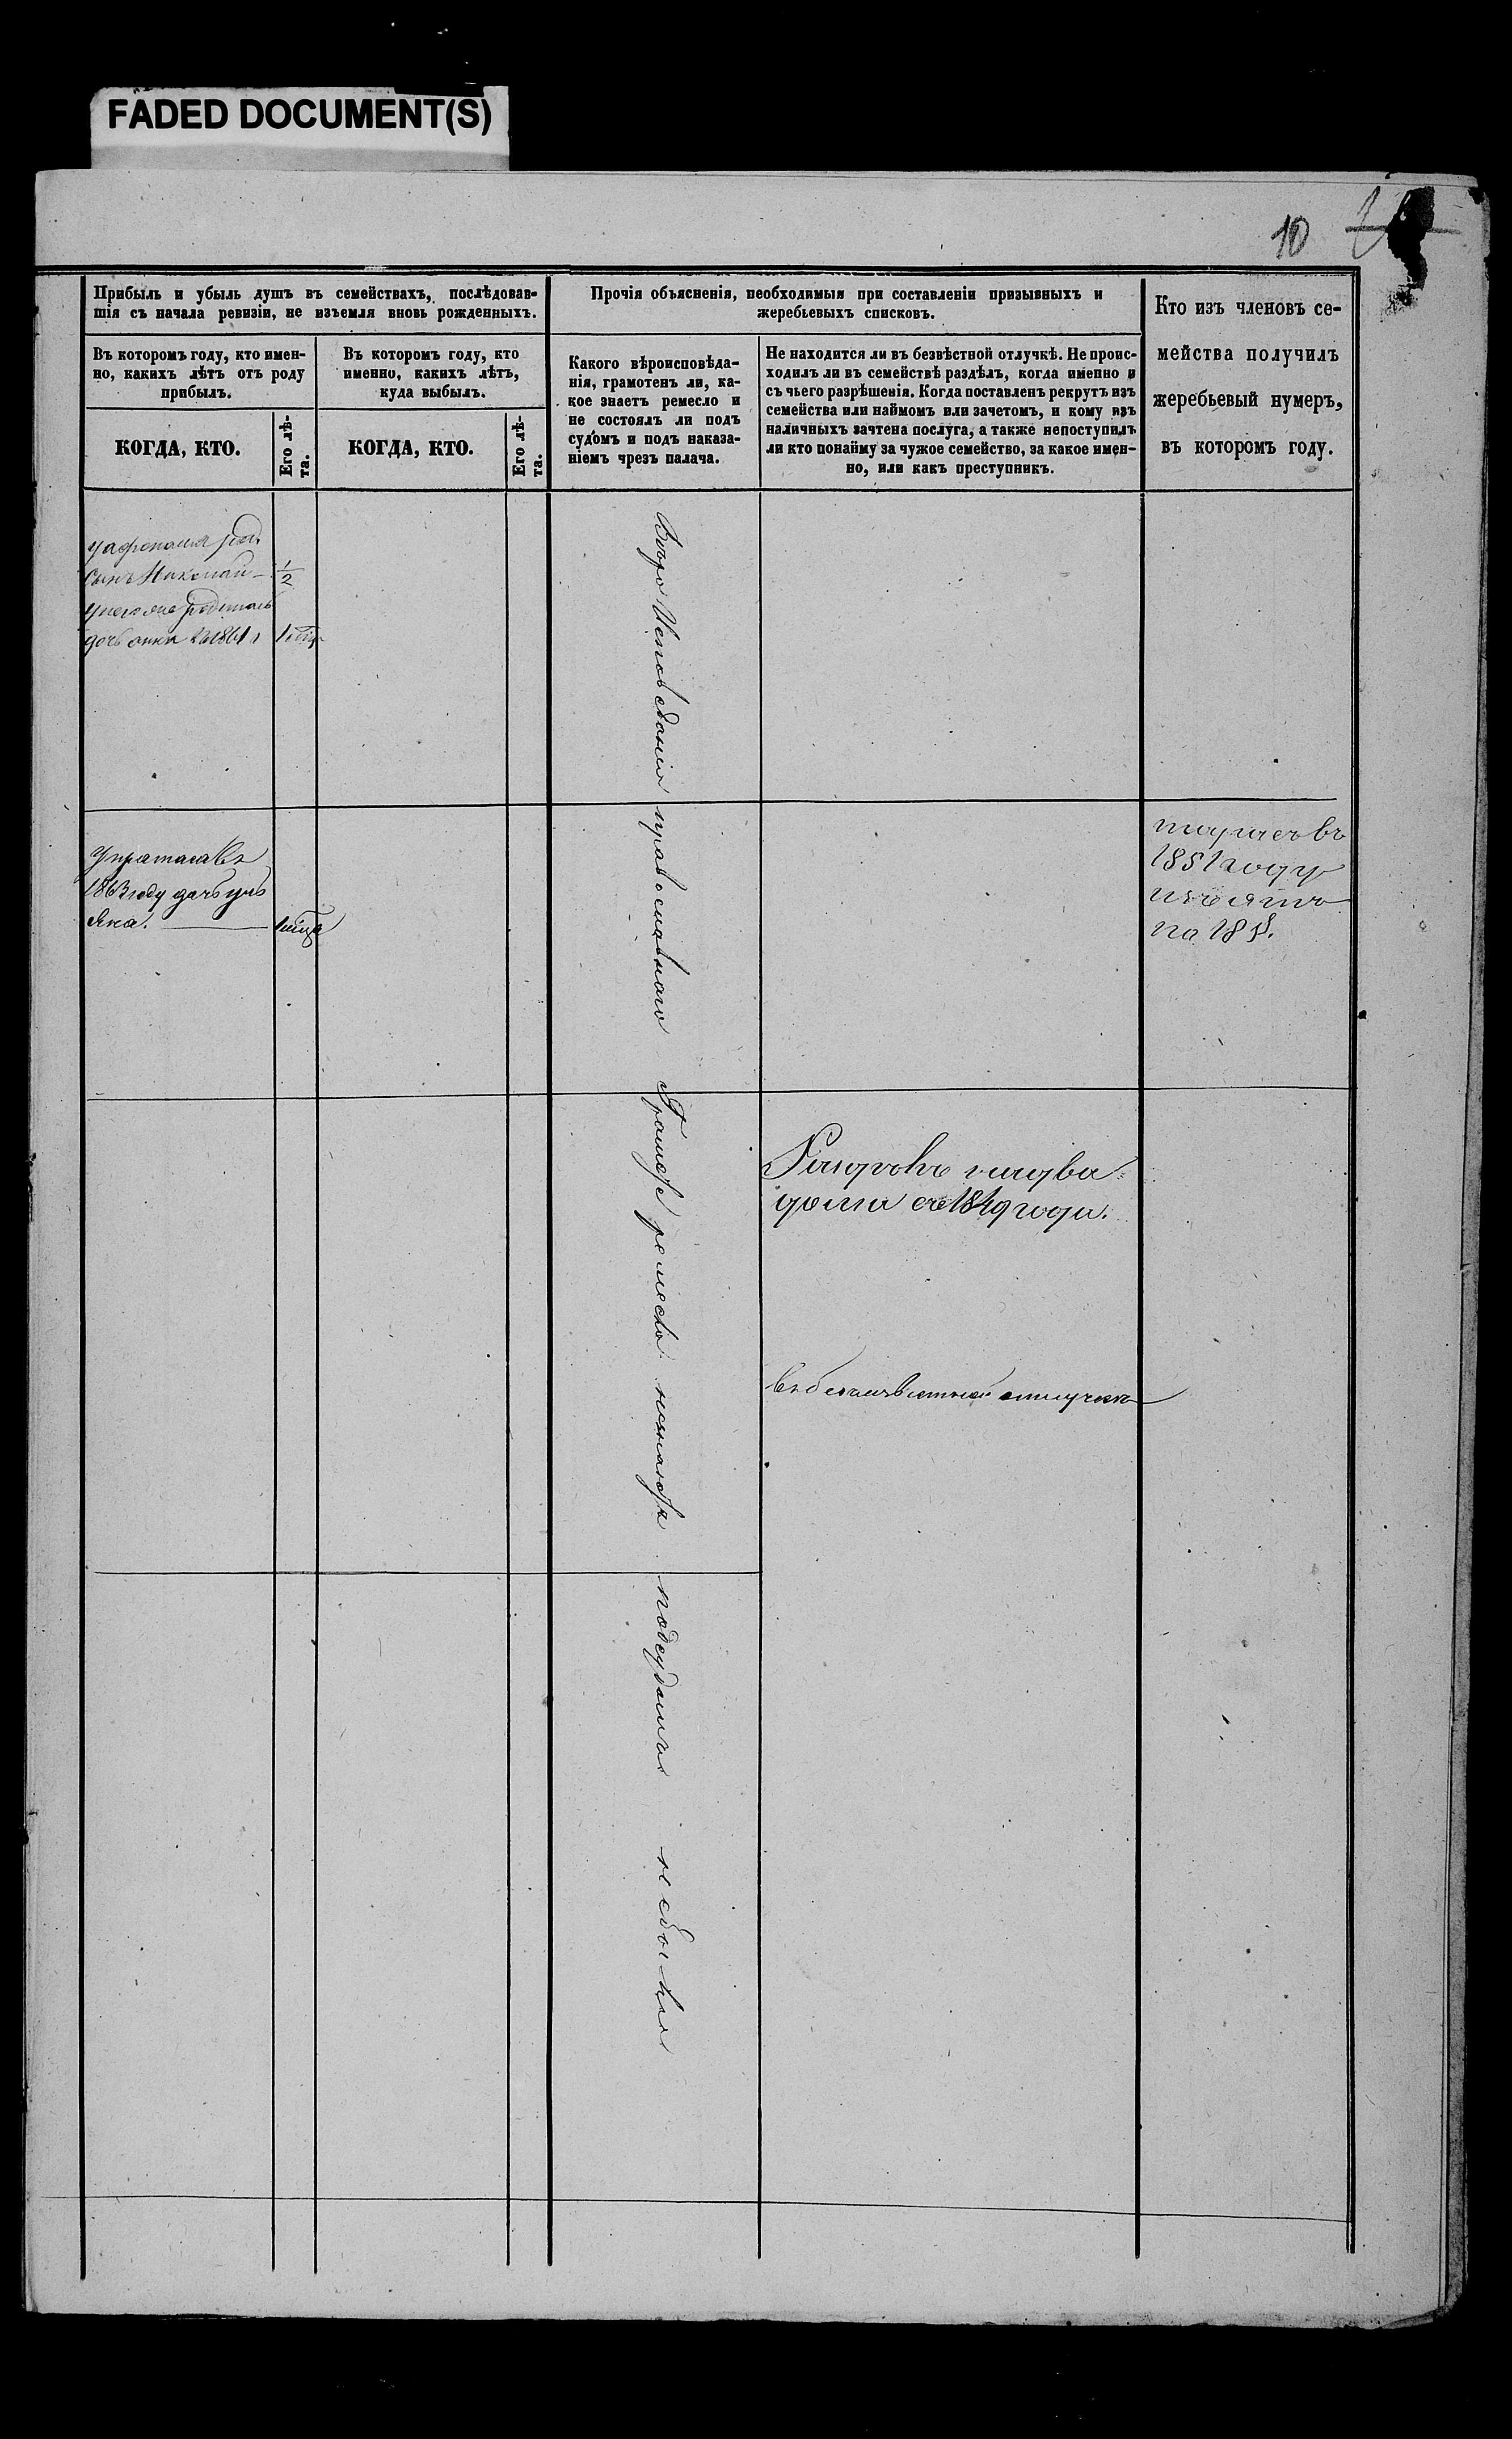 FADED DOCUMENT(S)
10
Прибыль и убыль душъ въ семействахъ, послѣдовав-
шія съ начала ревизіи, не изъемля вновь рожденныхъ.
Прочія объясненія, необходимыя при составленіи призывныхъ и
жеребьевыхъ списковъ.
Кто изъ членовъ се-
мейства получилъ
жеребьевый нумеръ,
въ которомъ году.
Въ которомъ году, кто имен-
но, какихъ лѣтъ отъ роду
прибылъ.
Въ которомъ году, кто
именно, какихъ лѣтъ,
куда выбылъ.
Какого вѣроисповѣда-
нія, грамотенъ ли, ка-
кое знаетъ ремесло и
не состоялъ ли подъ
судомъ и подъ наказа-
ніемъ чрезъ палача.
Не находится ли въ безвѣстной отлучкѣ. Не проис-
ходилъ ли въ семействѣ раздѣлъ, когда именно и
съ чьего разрѣшенія. Когда поставленъ рекрутъ изъ
семейства или наймомъ или зачетомъ, и кому изъ
наличныхъ зачтена послуга, а также непоступилъ
ли кто понайму за чужое семейство, за какое имен-
но, или какъ преступникъ.
КОГДА, КТО.
Его лѣ-
та.
КОГДА, КТО.
Его лѣ-
та.
у афонасия род.
сынъ Николай — 1/2
у него же родилась
дочь анна 1861 г
1851 году
на 185
1863 году дочь уль
яна.
Веро Исповедания православнаго
ремесла незнаютъ
подсудомъ небыли
Раздробъ на два
дома съ 1849 года.
въ безъизвѣстной отлучкѣ